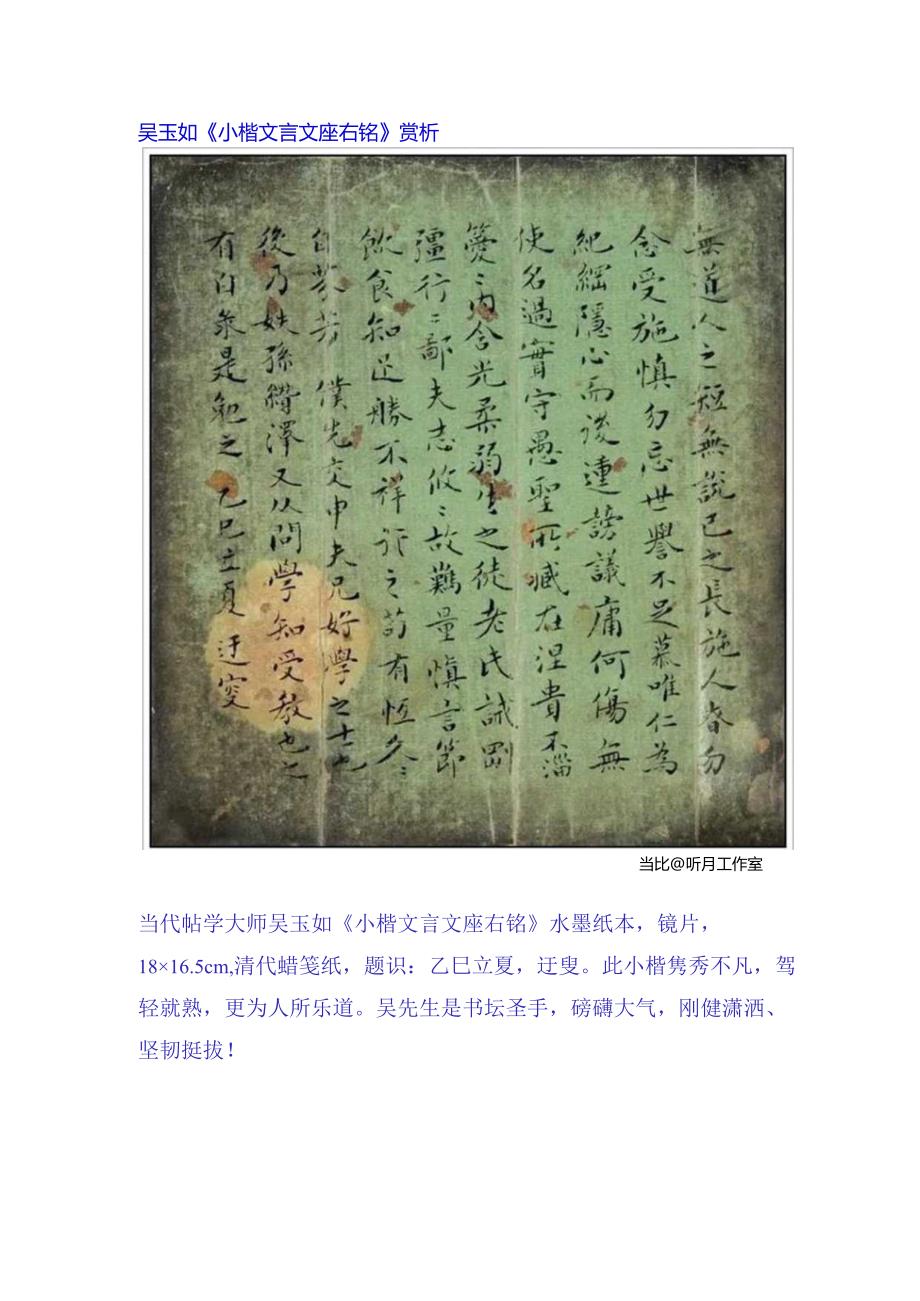 吴玉如《小楷文言文座右铭》赏析
無道人之短無說己之長施人眘勿
念受施慎勿忘世譽不足慕唯仁為
紀綱隱心而後謗議庸何傷無
使名過實守愚聖所臧在涅貴不淄
〻內含光柔弱生之徒老氏誡剛
彊行〻鄙夫志攸〻故難量慎言節
飲食知足勝不祥行之苟有恆久〻
自芬芳 僕先交申夫兄好學之士也
後乃孫澤又从問學知受教也之
有白是勉之 乙巳立夏 迂叟
当比@听月工作室
当代帖学大师吴玉如《小楷文言文座右铭》水墨纸本，镜片，
18×16.5cm,清代蜡笺纸，题识：乙巳立夏，迂叟。此小楷隽秀不凡，驾
轻就熟，更为人所乐道。吴先生是书坛圣手，磅礴大气，刚健潇洒、
坚韧挺拔！